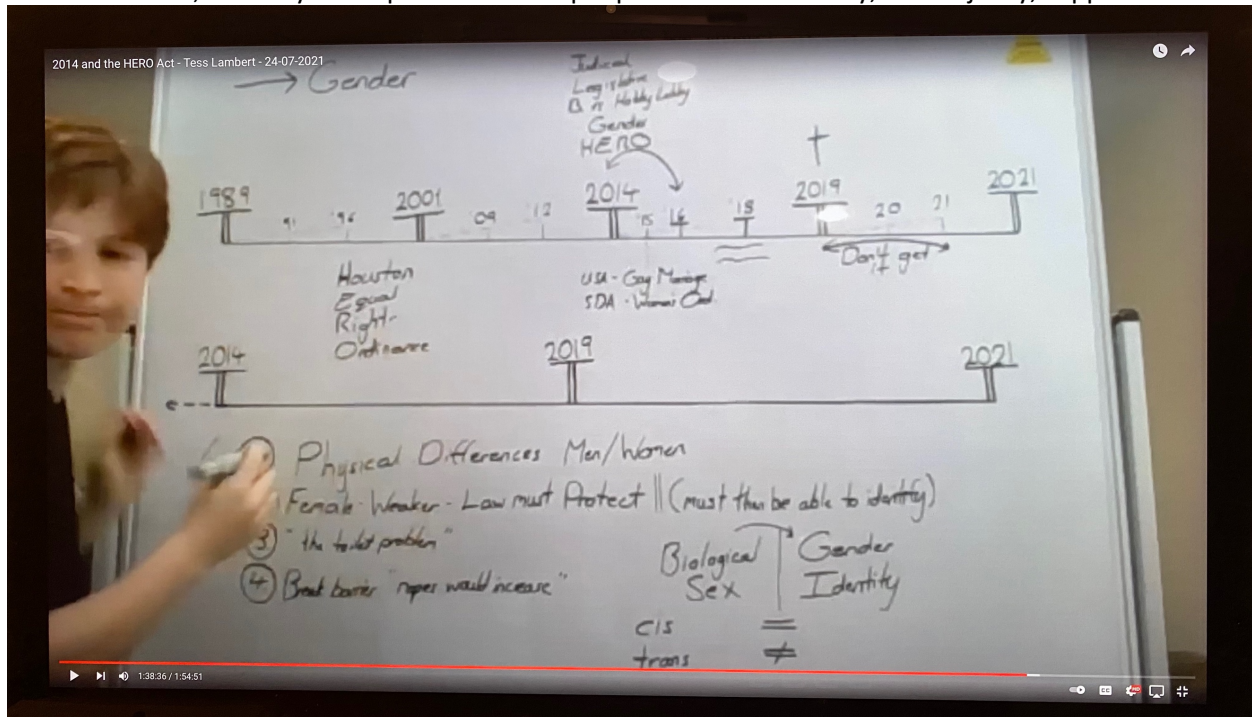 2014 and the HERO Act - Tess Lambert - 24-07-2021
→ Gender
Judicial
Legislative
B n Hobby Lobby
Gender
HERO
†
1989
91
'96
2001
09
'12
2014
'15
16
'18
2019
20
21
2021
Don't get
it
Houston
Equal
Right-
Ordinance
USA - Gay Marriage
SDA - Women's Ord.
2014
2019
2021
Physical Differences Men/Women
Female - Weaker - Law must Protect || (must then be able to identify)
③ "the toilet problem"
④ Break barrier "rapes would increase"
Biological
Sex
Gender
Identity
cis =
trans ≠
1:38:36 / 1:54:51
CC
HD